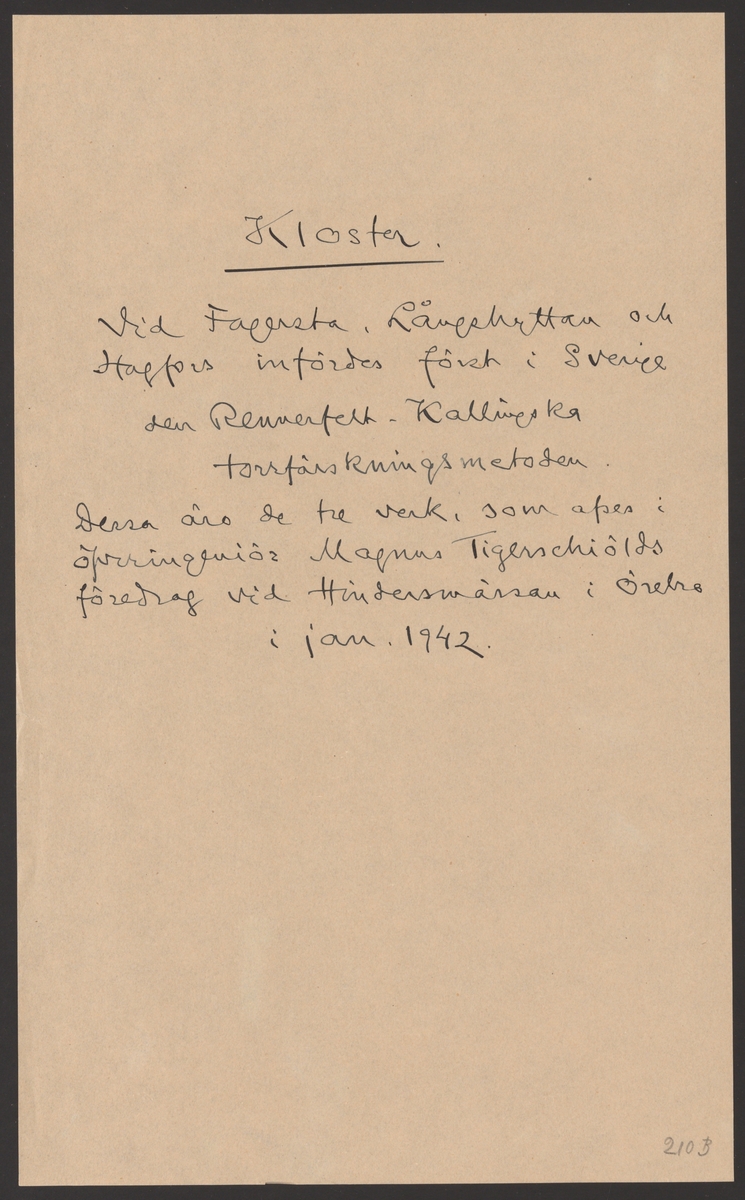 Kloster.
Vid Fagersta, Långshyttan och
Hagfors infördes först i Sverige
den Rennerfelt-Kallingska
torrfärskningsmetoden.
Dessa äro de tre verk, som afses i
öfveringeniör Magnus Tigerschiölds
föredrag vid Hindersmässan i Örebro
i jan. 1942.
210 B